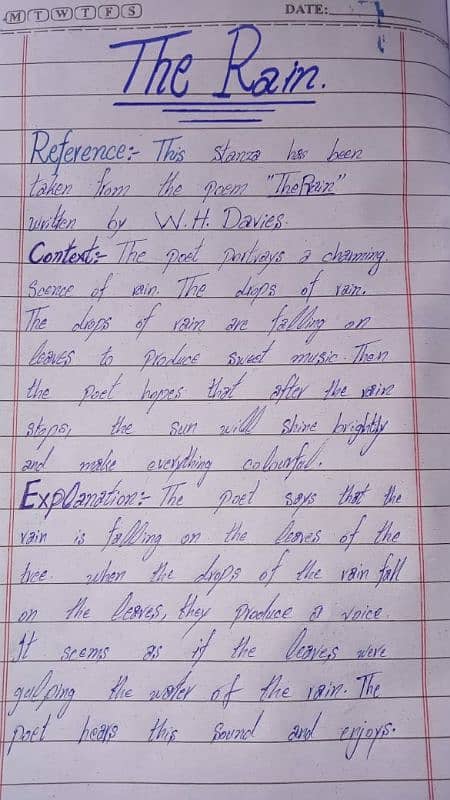 M T W T F S DATE:
The Rain.
Reference:- This stanza has been
taken from the poem "The Rain"
written by W.H. Davies.
Context:- The poet portrays a charming
Scence of rain. The drops of rain.
The drops of rain are falling on
leaves to produce sweet music. Then
the poet hopes that after the rain
stops, the sun will shine brightly
and make everything colourful.
Explanation:- The poet says that the
rain is falling on the leaves of the
tree. when the drops of the rain fall
on the leaves, they produce a voice.
It seems as if the leaves were
gulping the water of the rain. The
poet hears this sound and enjoys.